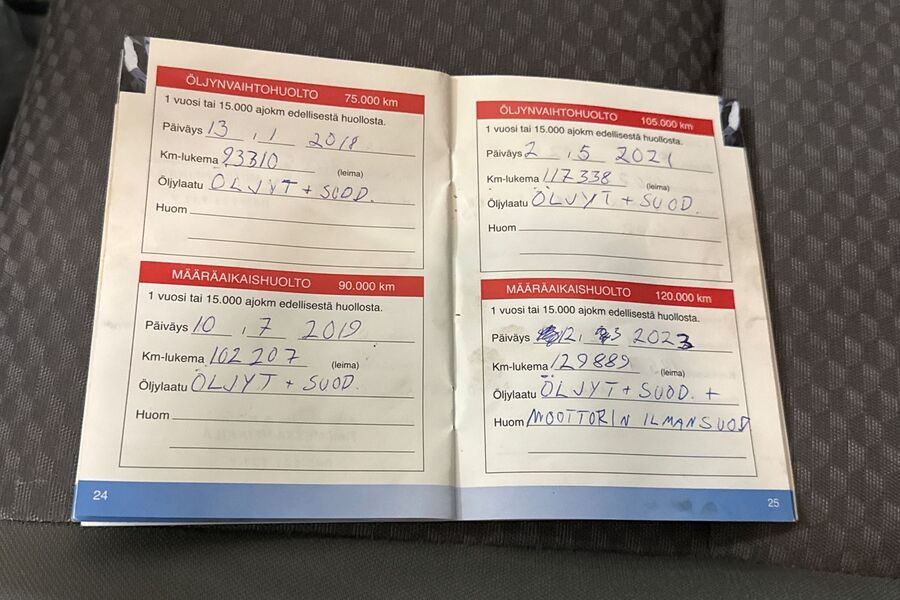 ÖLJYNVAIHTOHUOLTO 75.000 km
1 vuosi tai 15.000 ajokm edellisestä huollosta.
Päiväys 13 . 1 2018
Km-lukema 93310 (leima)
Öljylaatu ÖLJYT + SUOD.
Huom
MÄÄRÄAIKAISHUOLTO 90.000 km
1 vuosi tai 15.000 ajokm edellisestä huollosta.
Päiväys 10 . 7 2019
Km-lukema 102207 (leima)
Öljylaatu ÖLJYT + SUOD.
Huom
24
ÖLJYNVAIHTOHUOLTO 105.000 km
1 vuosi tai 15.000 ajokm edellisestä huollosta.
Päiväys 2 . 5 2021
Km-lukema 117338 (leima)
Öljylaatu ÖLJYT + SUOD.
Huom
MÄÄRÄAIKAISHUOLTO 120.000 km
1 vuosi tai 15.000 ajokm edellisestä huollosta.
Päiväys 12. 3 2023
Km-lukema 129889 (leima)
Öljylaatu ÖLJYT + SUOD. +
Huom MOOTTORIN ILMANSUOD
25